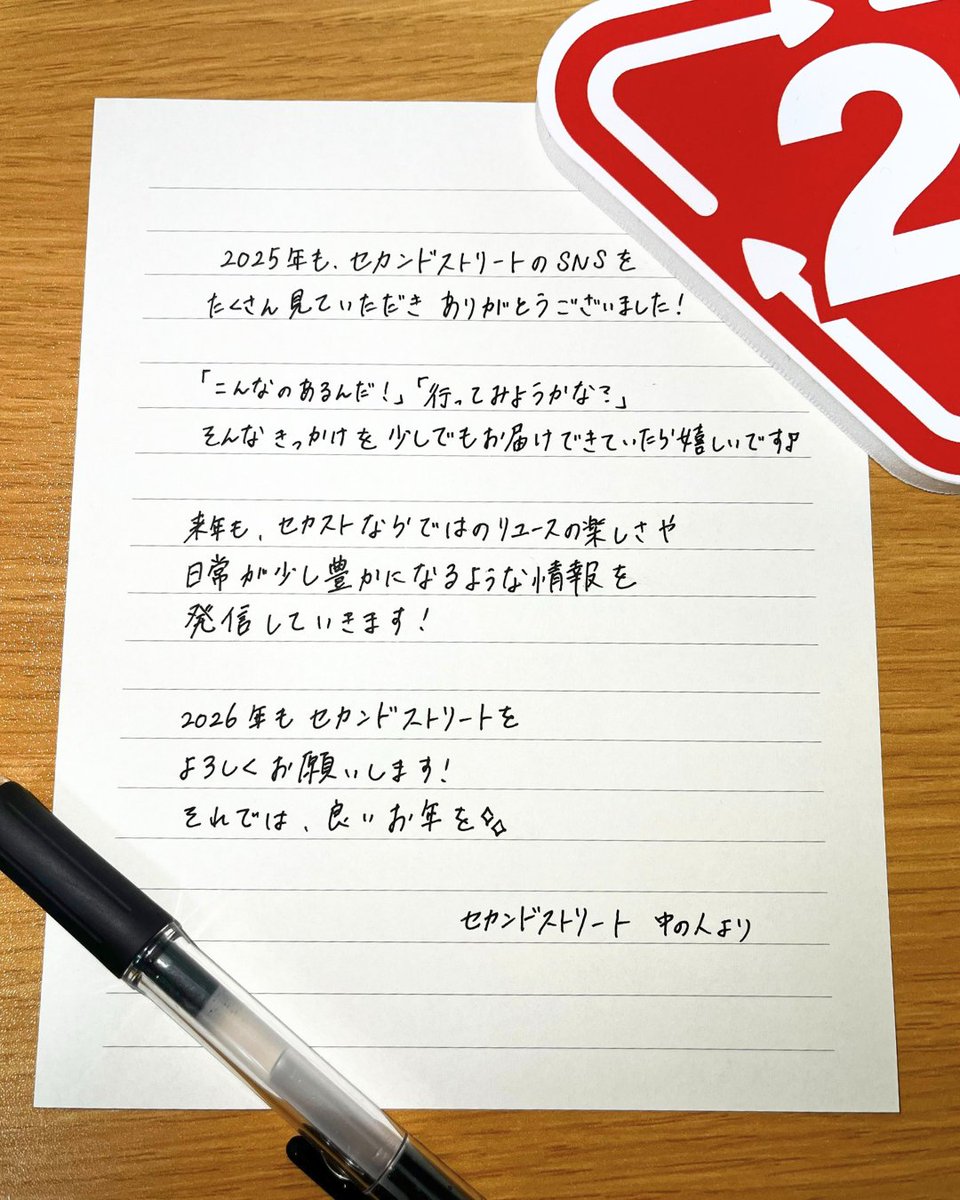 2025年も、セカンドストリートのSNSを
たくさん見ていただき ありがとうございました!
「こんなのあるんだ!」「行ってみようかな?」
そんなきっかけを少しでもお届けできていたら嬉しいです♪
来年も、セカストならではのリユースの楽しさや
日常が少し豊かになるような情報を
発信していきます!
2026年もセカンドストリートを
よろしくお願いします!
それでは、良いお年を
セカンドストリート 中の人より
2